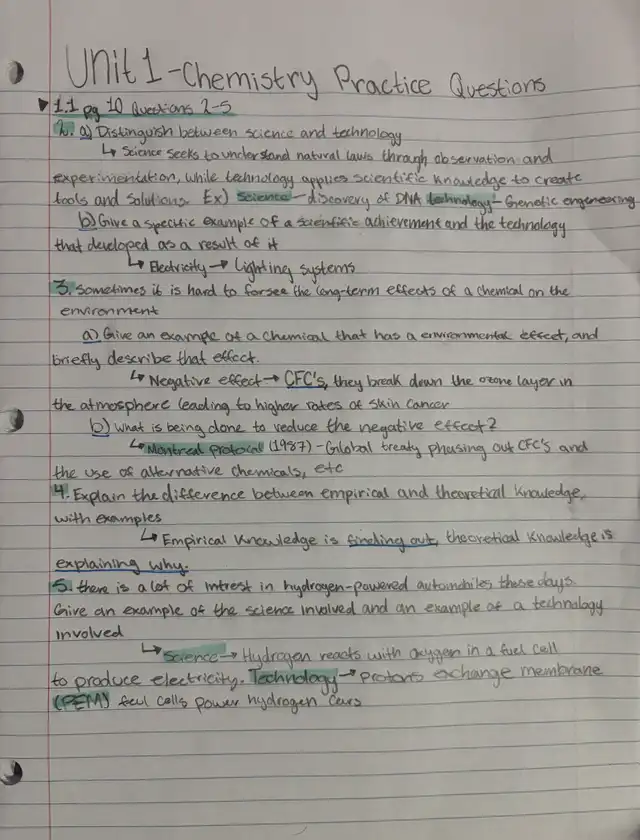 Unit 1 - Chemistry Practice Questions
▼ 1.1 pg 10 Questions 2-5
2. a) Distinguish between science and technology
↳ Science seeks to understand natural laws through observation and
experimentation, while technology applies scientific knowledge to create
tools and solutions. Ex) Science - discovery of DNA technology - Genetic engeneering
b) Give a specific example of a scientific achievement and the technology
that developed as a result of it
↳ Electricity → Lighting systems
3. Sometimes it is hard to forsee the long-term effects of a chemical on the
environment
a) Give an example of a chemical that has a environmental effect, and
briefly describe that effect.
↳ Negative effect → CFC's, they break down the ozone layer in
the atmosphere leading to higher rates of skin cancer
b) what is being done to reduce the negative effect?
↳ Montreal protocal (1987) - Global treaty phasing out CFC's and
the use of alternative chemicals, etc
4. Explain the difference between empirical and theoretical knowledge,
with examples
↳ Empirical knowledge is finding out, theoretical knowledge is
explaining why.
5. there is a lot of intrest in hydrogen-powered automobiles these days.
Give an example of the science involved and an example of a technology
involved
↳ Science → Hydrogen reacts with oxygen in a fuel cell
to produce electricity. Technology → protons exchange membrane
(PEM) feul cells power hydrogen cars